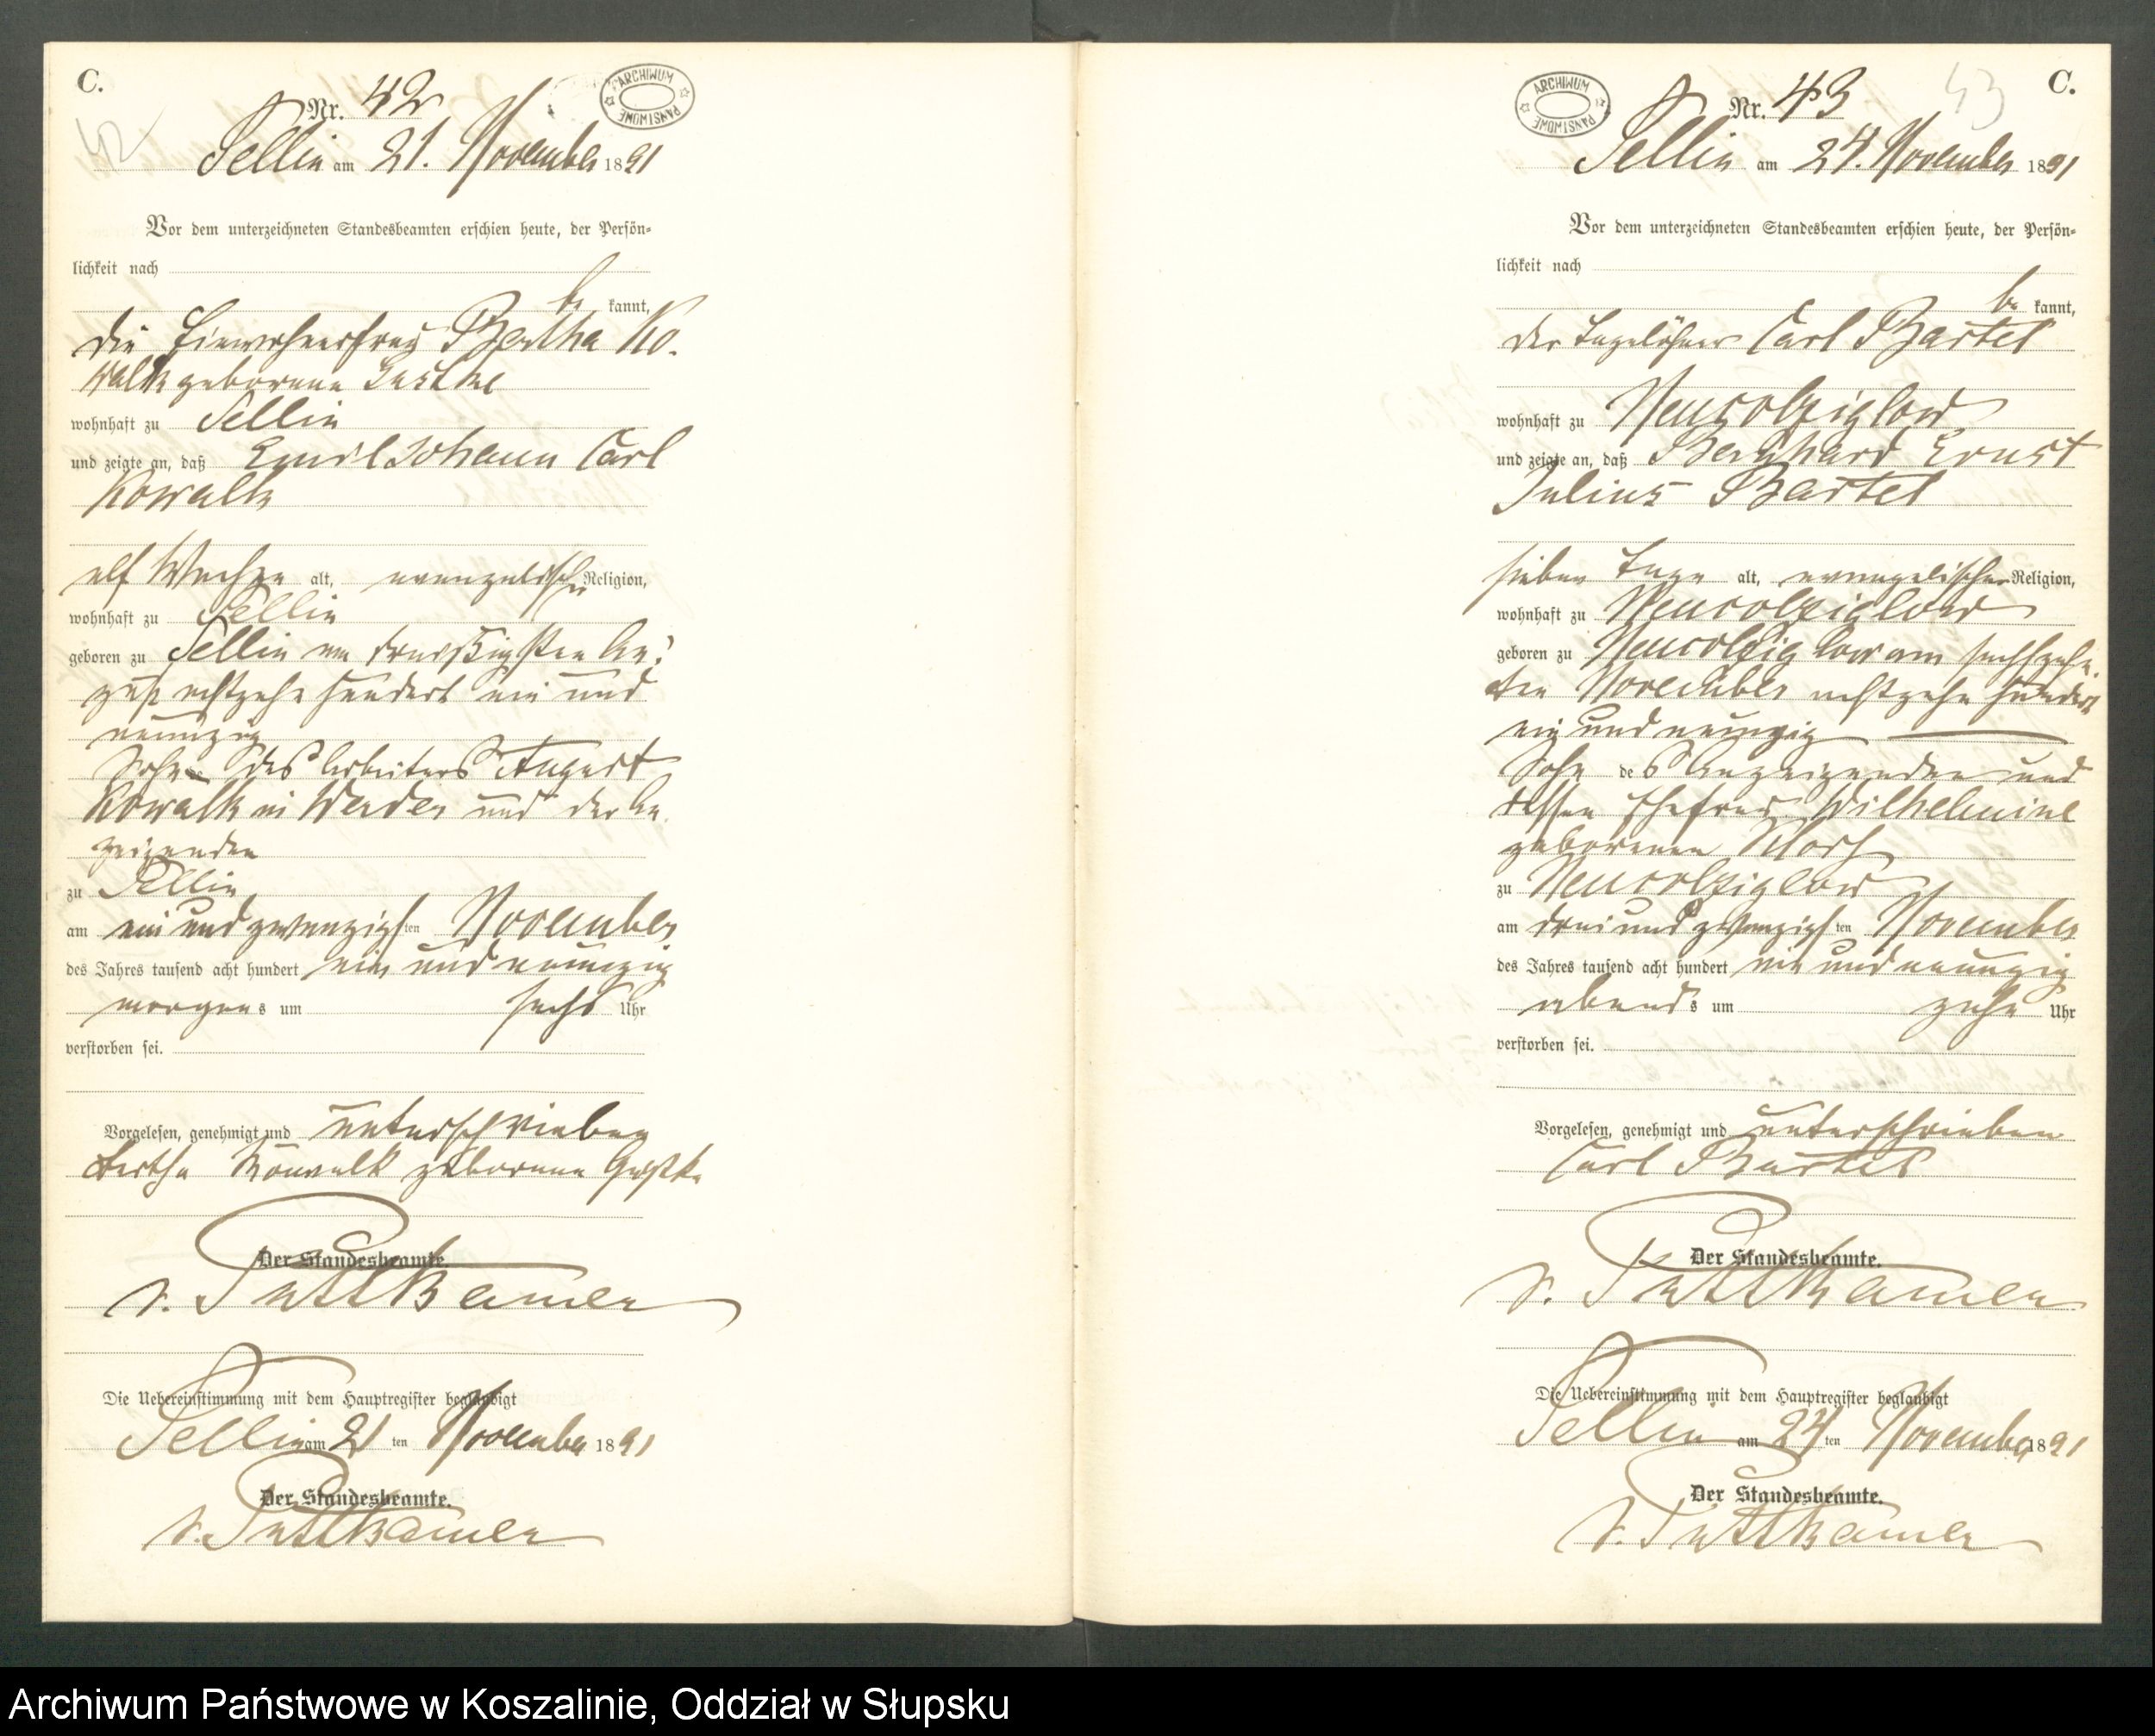 C.
Nr. 42
42
ARCHIWUM PAŃSTWOWE
Sellin am 21. November 1891
Vor dem unterzeichneten Standesbeamten erschien heute, der Persön-
lichkeit nach
be kannt,
die Einwohnerfrau Bertha Ko-
walk geborene
wohnhaft zu Sellin
und zeigte an, daß Emil Johann Carl
Kowalk
elf Wochen alt, evangelischer Religion,
wohnhaft zu Sellin
geboren zu Sellin am dreißigsten Au-
gust achtzehn hundert ein und
neunzig
Sohn des Arbeiters August
Kowalk in Werder und der An-
zeigenden
zu Sellin
am ein und zwanzigsten November
des Jahres tausend acht hundert ein und neunzig
morgens um sechs Uhr
verstorben sei.
Vorgelesen, genehmigt und unterschrieben
Bertha Kowalk geborene
Der Standesbeamte.
v. Puttkamer
Die Uebereinstimmung mit dem Hauptregister beglaubigt
Sellin am 21 ten November 1891
Der Standesbeamte.
v. Puttkamer
C.
Nr. 43
43
ARCHIWUM PAŃSTWOWE
Sellin am 24. November 1891
Vor dem unterzeichneten Standesbeamten erschien heute, der Persön-
lichkeit nach
be kannt,
der Tagelöhner Carl Bartel
wohnhaft zu Neucolziglow
und zeigte an, daß Bernhard Ernst
Julius Bartel
sieben Tage alt, evangelischer Religion,
wohnhaft zu Neucolziglow
geboren zu Neucolziglow am sechszehn-
ten November achtzehn hundert
ein und neunzig
Sohn des Anzeigenden und
dessen Ehefrau Wilhelmine
geborenen
zu Neucolziglow
am drei und zwanzigsten November
des Jahres tausend acht hundert ein und neunzig
abends um zehn Uhr
verstorben sei.
Vorgelesen, genehmigt und unterschrieben
Carl Bartel
Der Standesbeamte.
v. Puttkamer
Die Uebereinstimmung mit dem Hauptregister beglaubigt
Sellin am 24 ten November 1891
Der Standesbeamte.
v. Puttkamer
Archiwum Państwowe w Koszalinie, Oddział w Słupsku